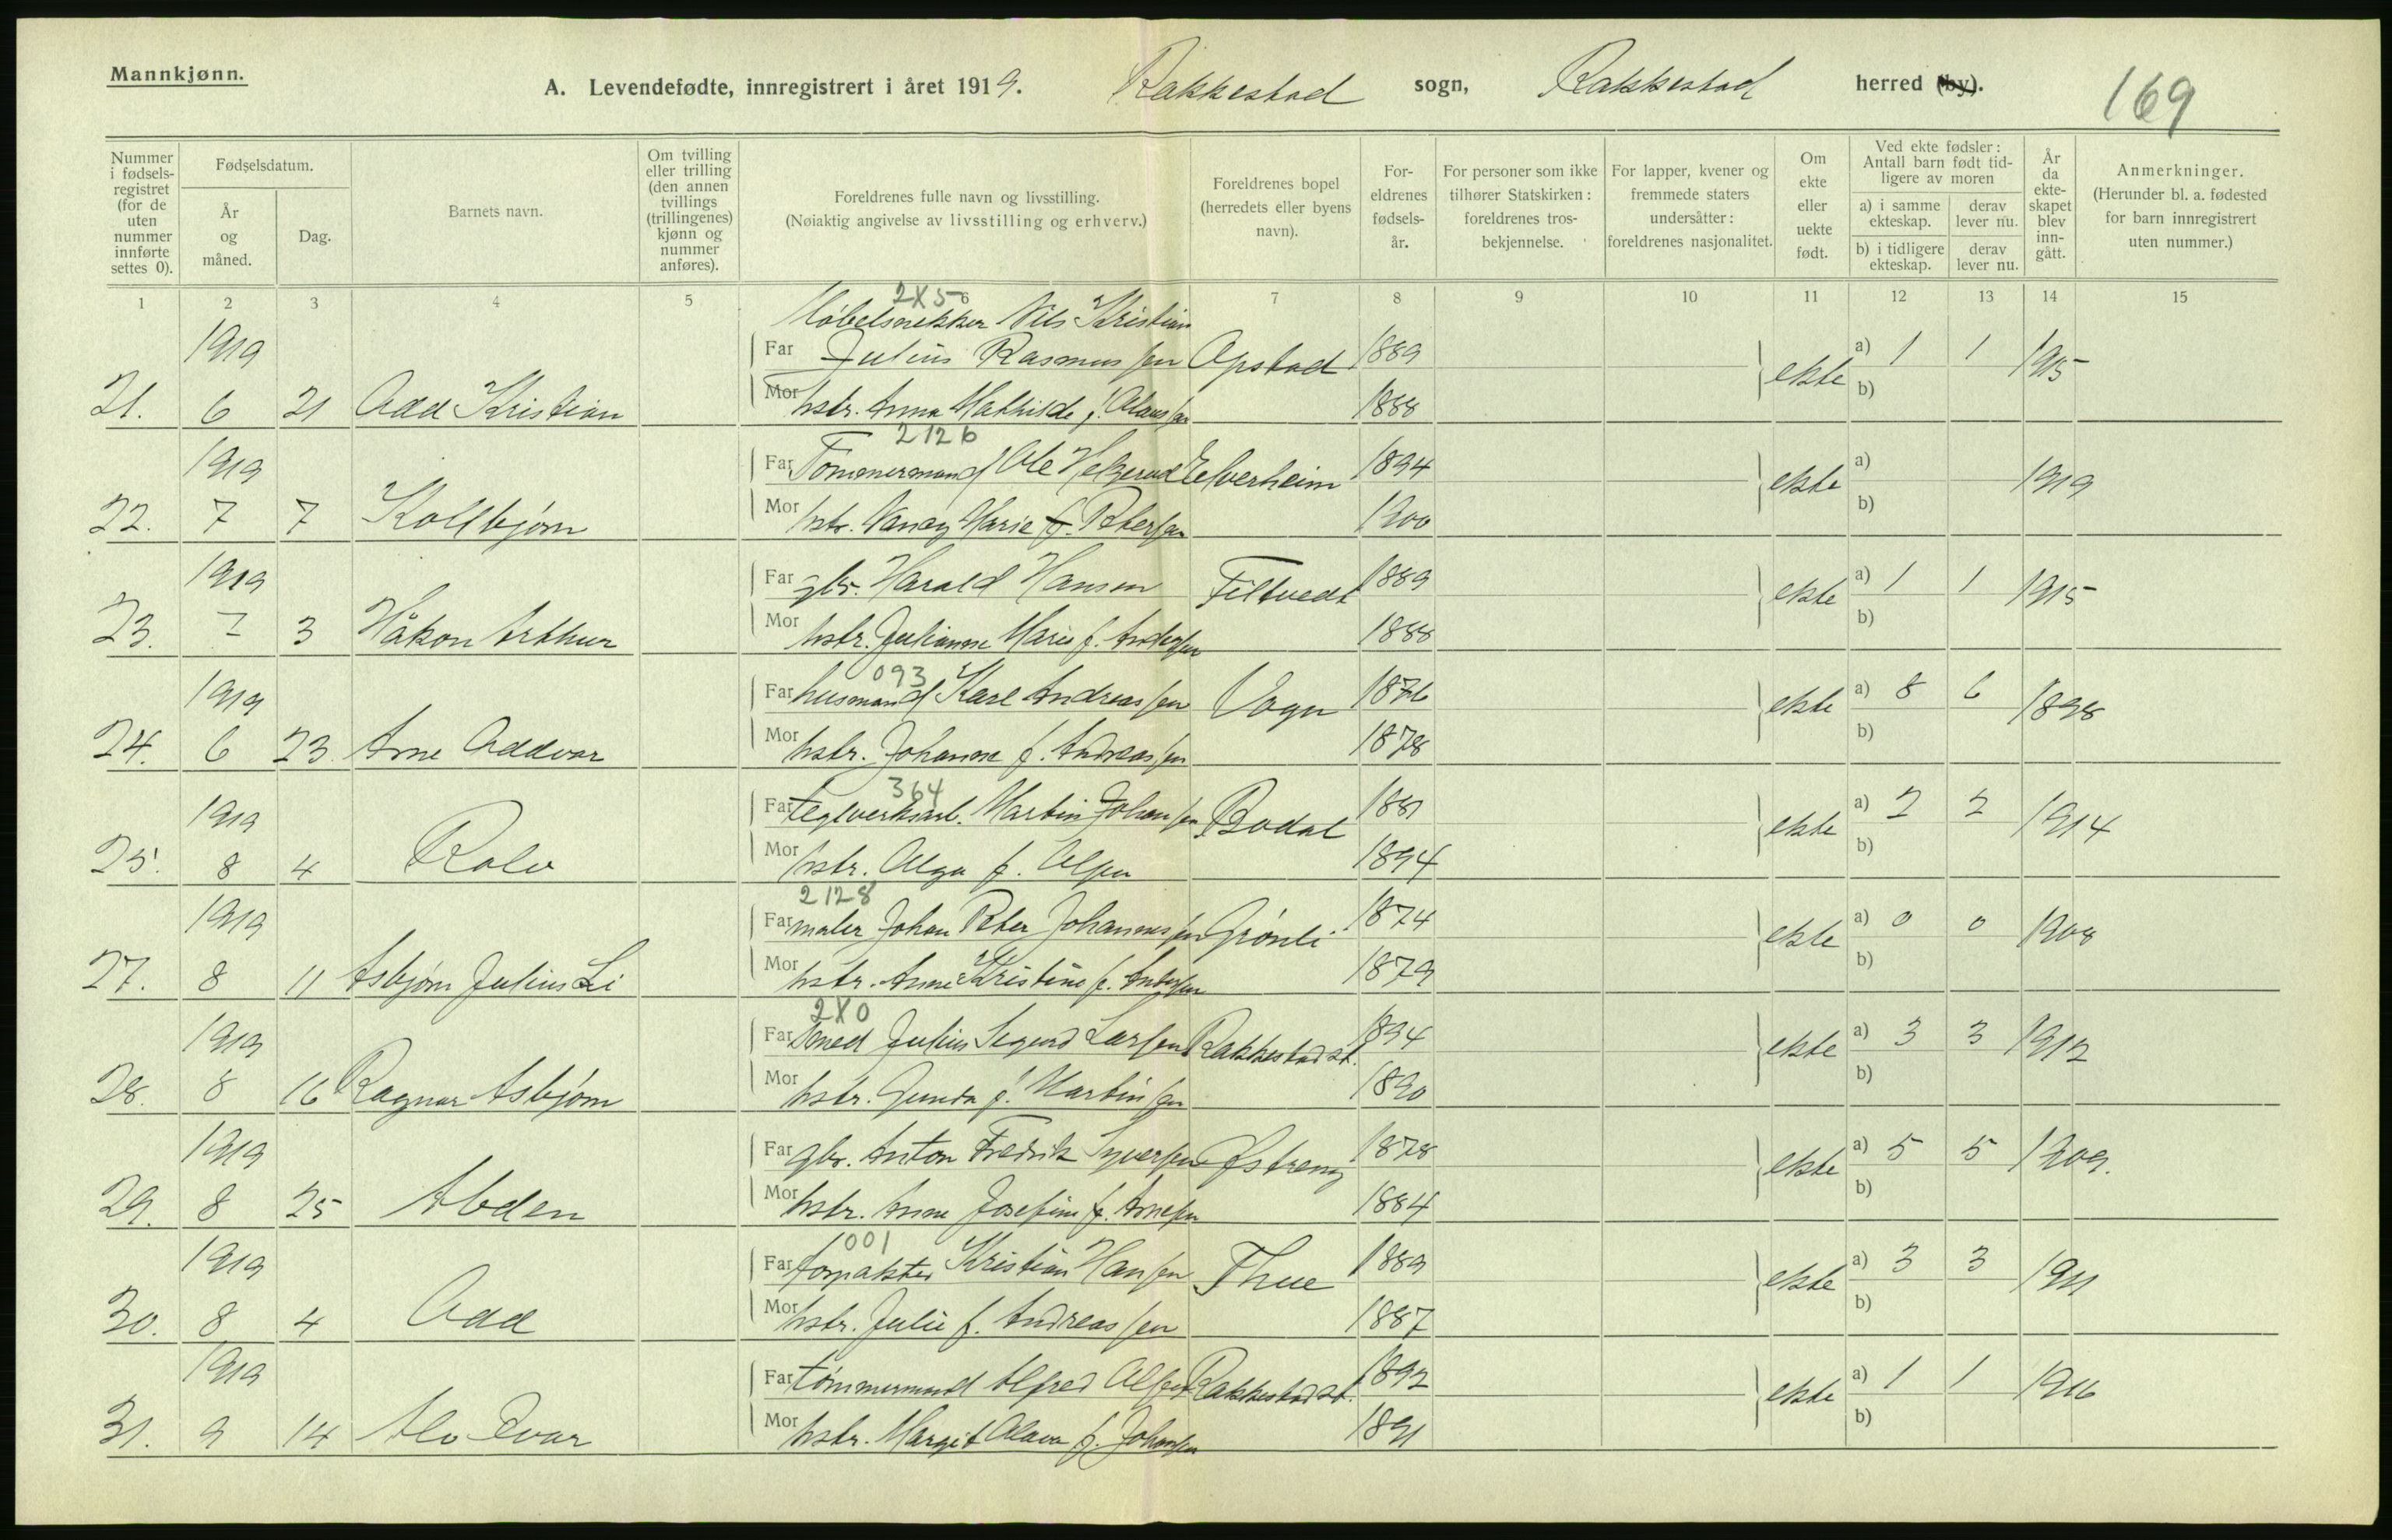 Mannkjønn.
A. Levendefødte, innregistrert i året 1919. Rakkestad sogn, Rakkestad herred (by).
169
Nummer i fødsels-registret (for de uten nummer innførte settes 0).
Fødselsdatum.
År og måned.
Dag.
Barnets navn.
Om tvilling eller trilling (den annen tvillings (trillingenes) kjønn og nummer anføres).
Foreldrenes fulle navn og livsstilling.
(Nøiaktig angivelse av livsstilling og erhverv.)
Foreldrenes bopel (herredets eller byens navn).
For-eldrenes fødsels-år.
For personer som ikke tilhører Statskirken: foreldrenes tros-bekjennelse.
For lapper, kvener og fremmede staters undersåtter: foreldrenes nasjonalitet.
Om ekte eller uekte født.
Ved ekte fødsler: Antall barn født tid-ligere av moren
a) i samme ekteskap.
derav lever nu.
b) i tidligere ekteskap.
derav lever nu.
År da ekte-skapet blev inn-gått.
Anmerkninger.
(Herunder bl. a. fødested for barn innregistrert uten nummer.)
1 2 3 4 5 6 7 8 9 10 11 12 13 14 15
2X5
Møbelsnekker Nils Kristian
1919 Far Julius Rasmussen Opstad 1889 a) 1 1 1915
21. 6 21 Odd Kristian Mor hstr. Anna Mathilde f. Olaussen 1888 ekte b)
2126
1919 Far Tømmermand Ole Helgerud Elverheim 1894 a) 1919
22. 7 7 Kollbjørn Mor hstr. Nancy Marie f. Petersen 1900 ekte b)
1919 Far gbr. Harald Hansen Filtvedt 1889 a) 1 1 1915
23. 7 3 Håkon Arthur Mor hstr. Julianne Marie f. Andersen 1888 ekte b)
093
1919 Far husmand Karl Andreassen Vogn 1876 a) 8 6 1898
24. 6 23 Arne Oddvar Mor hstr. Johanne f. Andreassen 1878 ekte b)
364
1919 Far teglverksarb. Martin Johansen Bodal 1881 a) 2 2 1914
25. 8 4 Rolv Mor hstr. Olga f. Olsen 1894 ekte b)
2128
1919 Far maler Johan Peter Johannessen Grønli 1874 a) 0 0 1908
27. 8 11 Asbjørn Julius Li Mor hstr. Anne Kristine f. Andersen 1879 ekte b)
2X0
1919 Far smed Julius Sigurd Larsen Rakkestad st. 1894 a) 3 3 1912
28. 8 16 Ragnar Asbjørn Mor hstr. Gunda f. Martinsen 1890 ekte b)
1919 Far gbr. Anton Fredrik Syversen Østreng 1878 a) 5 5 1909.
29. 8 25 Mor hstr. Anne Josefine f. Arnesen 1884 ekte b)
001
1919 Far forpakter Kristian Hansen Thue 1889 a) 3 3 1911
30. 8 4 Odd Mor hstr. Julie f. Andreassen 1887 ekte b)
1919 Far tømmermand Alfred Olsen Rakkestad st. 1892 a) 1 1 1916
31. 9 14 Alv Ivar Mor hstr. Margit Olava f. Johansen 1891 ekte b)